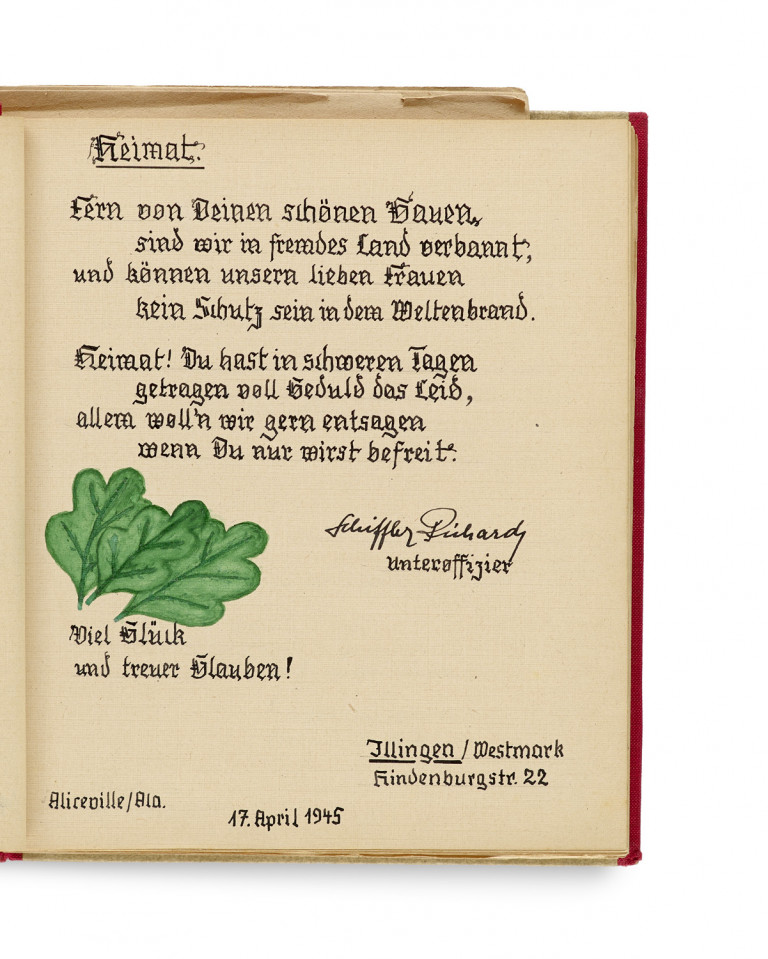 Heimat.
Fern von Deinen schönen Gauen,
sind wir in fremdes Land verbannt,
und können unsern lieben Frauen
kein Schutz sein in dem Weltenbrand.
Heimat! Du hast in schweren Tagen
getragen voll Geduld das Leid,
allem woll'n wir gern entsagen
wenn Du nur wirst befreit.
Schiffler Richard
Unteroffizier
Viel Glück
und treuer Glauben!
Illingen / Westmark
Hindenburgstr. 22
Aliceville/Ala.
17. April 1945